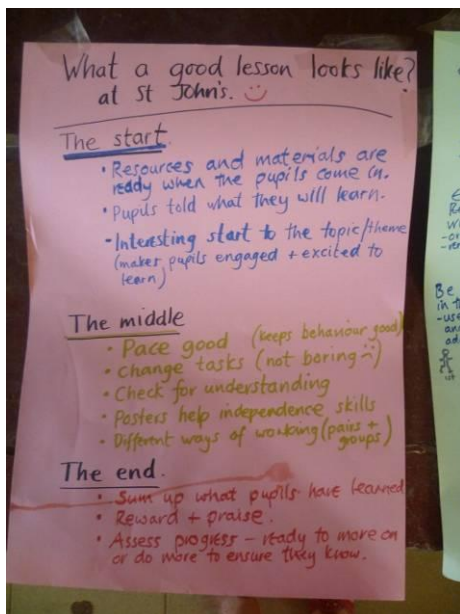 What a good lesson looks like?
at St John's.
The start
• Resources and materials are
ready when the pupils come in.
• Pupils told what they will learn.
- Interesting start to the topic/theme
(makes pupils engaged + excited to
learn)
The middle
• Pace good (keeps behaviour good)
• Change tasks (not boring )
• Check for understanding
• Posters help independence skills
• Different ways of working (pairs +
goups)
The end.
• Sum up what pupils have learned
• Reward + praise.
• Assess progress - ready to more on
or do more to ensure they know.
Be
in th
- use
an
ad